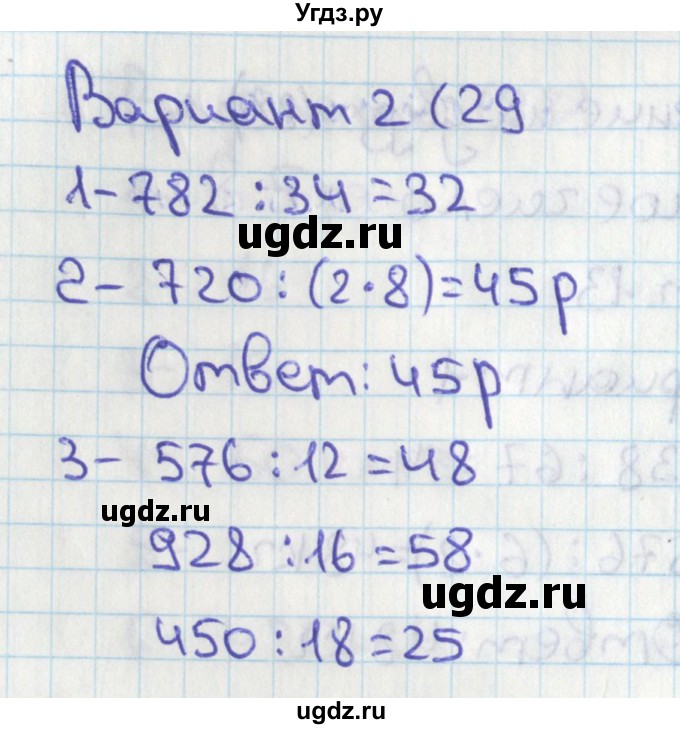 Угдз.ру
Вариант 2 (29
1- 782 : 34 = 32
ugdz.ru
2- 720 : (2·8) = 45р
Ответ: 45р
3- 576 : 12 = 48
ugdz.ru
928 : 16 = 58
ugdz.ru
450 : 18 = 25
ugdz.ru